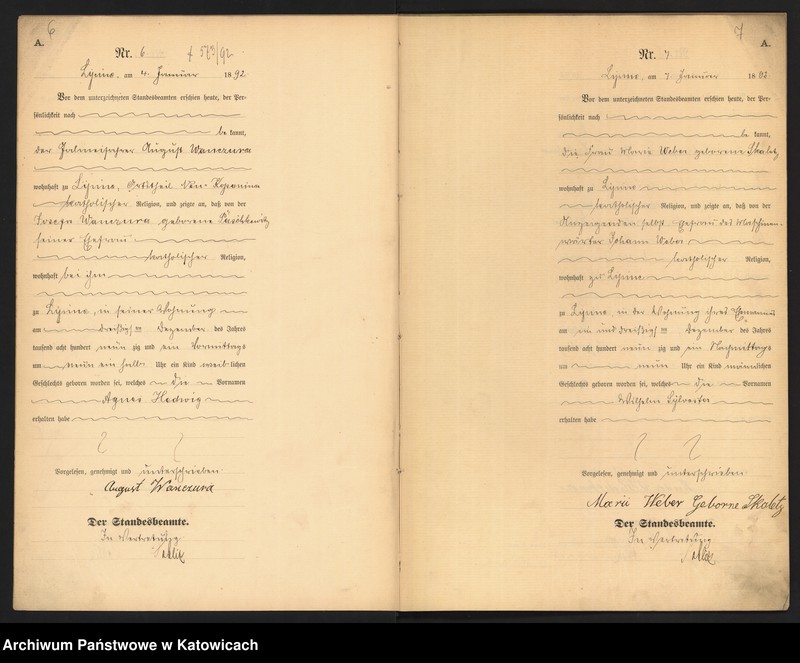 6
A.
Nr. 6
† 573/92
Lysina, am 4. Januar 1892
Vor dem unterzeichneten Standesbeamten erschien heute, der Per-
sönlichkeit nach
be kannt,
der August Wanczura
wohnhaft zu
katholischer Religion, und zeigte an, daß von der
Josefa Wanczura geborene
seiner Ehefrau
katholischer Religion,
wohnhaft bei ihm
zu in seiner Wohnung
am dreißigsten Dezember des Jahres
tausend acht hundert neun zig und ein Vormittags
um neun ein halb Uhr ein Kind weiblichen
Geschlechts geboren worden sei, welches die Vornamen
Agnes Hedwig
erhalten habe
Vorgelesen, genehmigt und unterschrieben
August Wanczura
Der Standesbeamte.
In Vertretung
7
A.
Nr. 7
am 7. Januar 1892
Vor dem unterzeichneten Standesbeamten erschien heute, der Per-
sönlichkeit nach
be kannt,
die Frau Marie Weber geborene Skaletz
wohnhaft zu
katholischer Religion, und zeigte an, daß von der
Anzeigenden selbst Ehefrau des Maschinen-
wärter Johann Weber
katholischer Religion,
wohnhaft zu
zu in der Wohnung ihres Ehemannes
am ein und dreißigsten Dezember des Jahres
tausend acht hundert neun zig und ein Nachmittags
um neun Uhr ein Kind männlichen
Geschlechts geboren worden sei, welches die Vornamen
Wilhelm Sylvester
erhalten habe
Vorgelesen, genehmigt und unterschrieben
Marii Weber Geborne Skaletz
Der Standesbeamte.
In Vertretung
Archiwum Państwowe w Katowicach